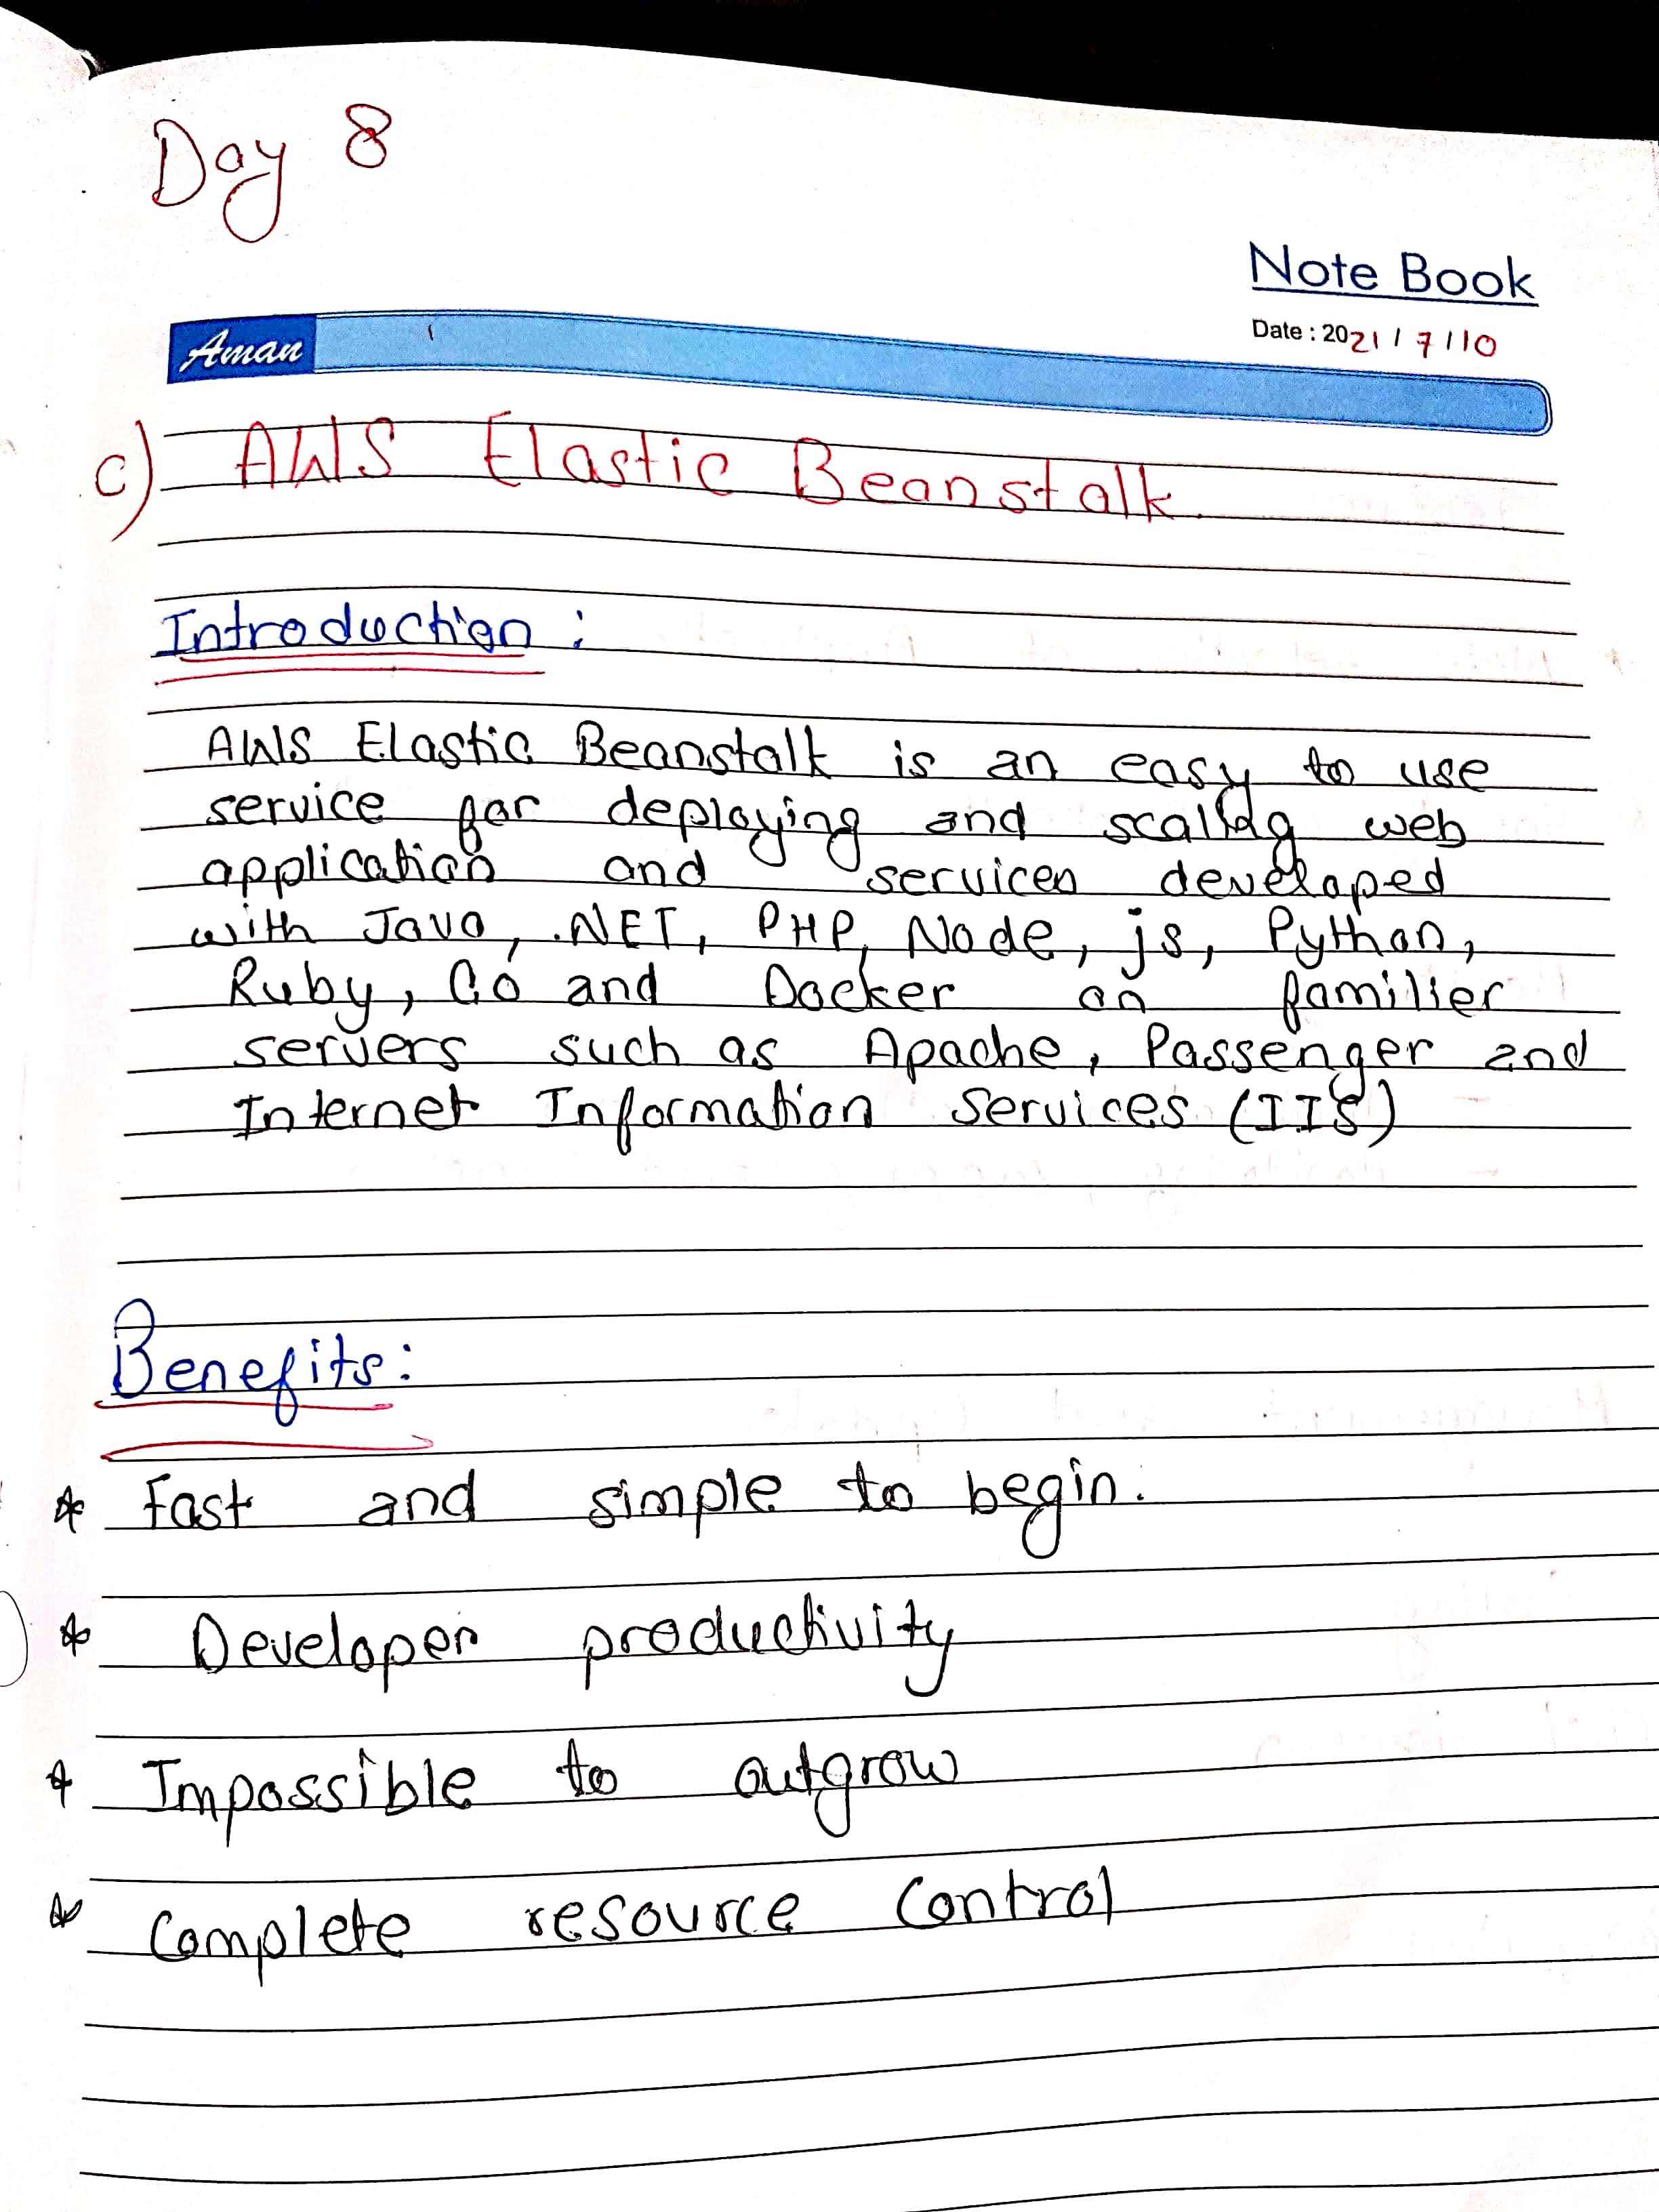 Day 8
Note Book
Date : 2021 / 7 / 10
Aman
c) AWS Elastic Beanstalk.
Introduction :
AWS Elastic Beanstalk is an easy to use
service for deploying and scaling web
application and services developed
with Java, .NET, PHP, Node, js, Python,
Ruby, Go and Docker on familier
servers such as Apache, Passenger and
Internet Information Services (IIS)
Benefits:
* Fast and simple to begin.
* Developer productivity
* Impossible to outgrow
* Complete resource Control